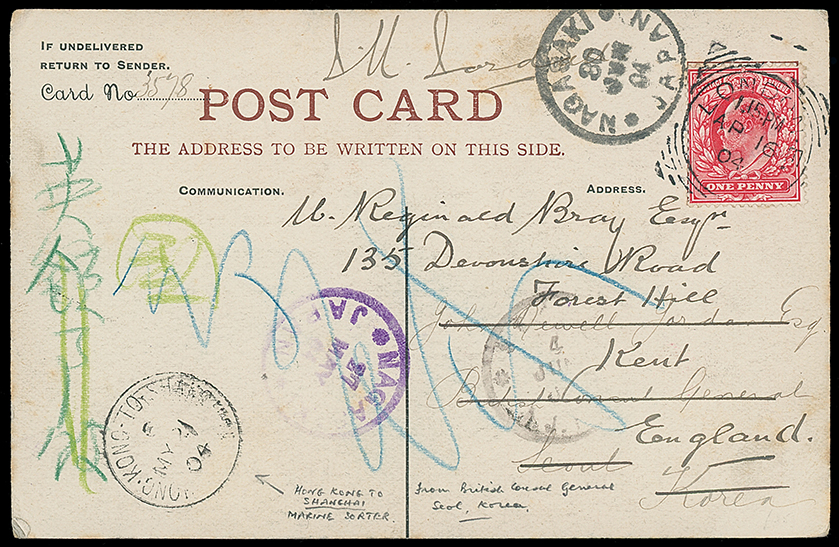 IF UNDELIVERED
RETURN TO SENDER.
Card No 3578
POST CARD
THE ADDRESS TO BE WRITTEN ON THIS SIDE.
NAGASAKI JAPAN
30 JUN 04
1.15PM
AP 16
04
ONE PENNY
Communication.
Address.
W. Reginald Bray Esqre
135 Devonshire Road
Forest Hill
John Newell Jordan Esq.
Kent
British Consul General
England.
Seoul
Korea
NAGA
JAPAN
HONG-KONG-TO-SHANGHAI
MY
04
HONG KONG TO
SHANGHAI
MARINE SORTER.
from British Consul General
Seol, Korea.